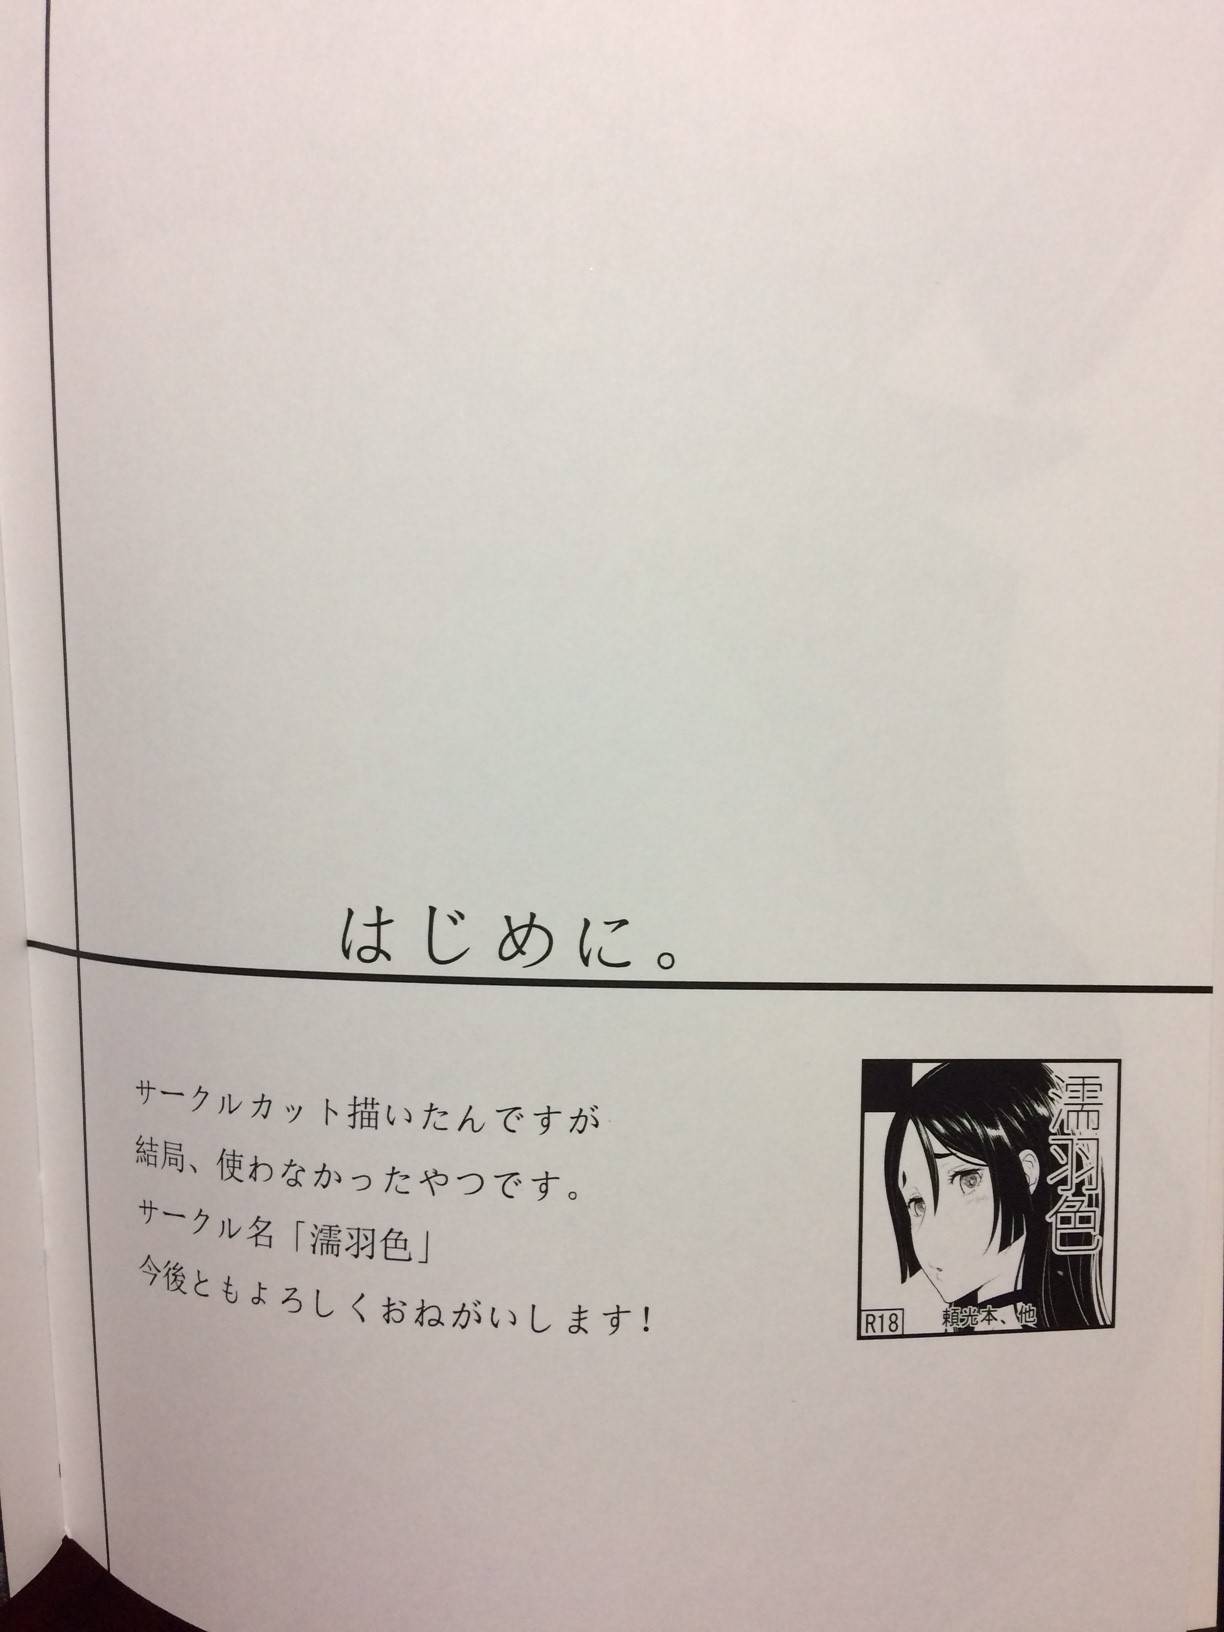 はじめに。
サークルカット描いたんですが
結局、使わなかったやつです。
サークル名「濡羽色」
今後ともよろしくおねがいします!
濡羽色
頼光本、他
R18